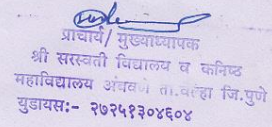 प्राचार्य/ मुख्याध्यापक
श्री सरस्वती विद्यालय व कनिष्ठ
महाविद्यालय अंबवणे ता.वेल्हा जि.पुणे
युडायसः- २७२५१३०४६०४